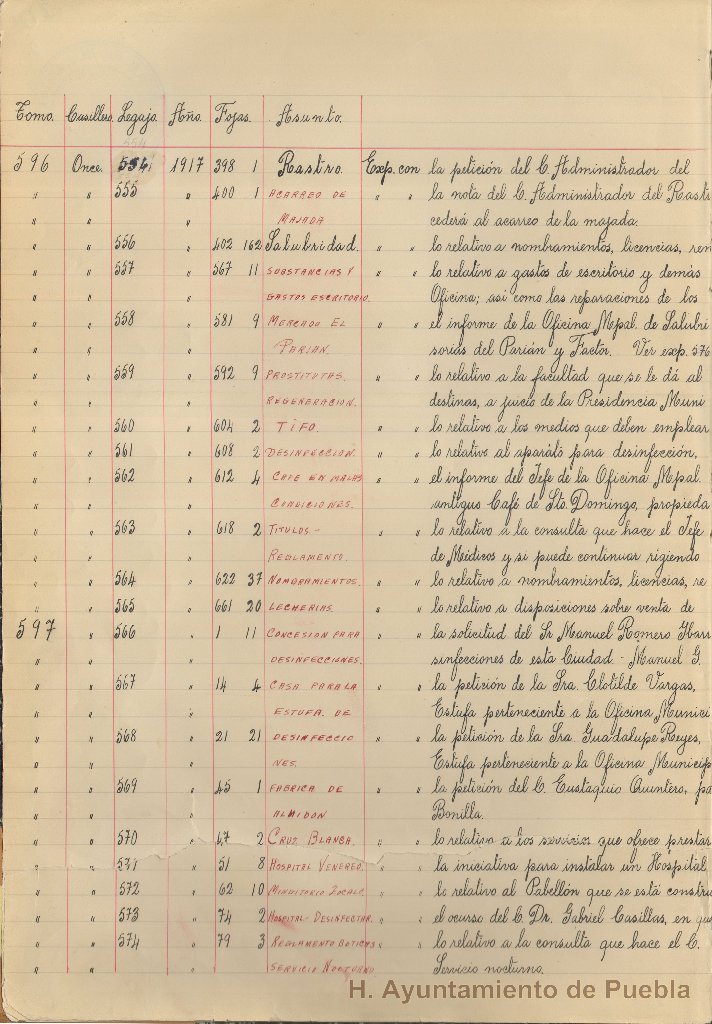 Tomo. Casillero. Legajo. Año. Fojas. Asunto.
596 Once. 554 1917 398 1 Rastro. Exp. con la petición del C. Administrador del
" " 555 " 400 1 ACARREO DE " " la nota del C. Administrador del Rastr
" " " MAJADA cederá al acarreo de la majada.
" " 556 " 402 162 Salubridad. " " lo relativo a nombramientos, licencias, ren
" " 557 " 567 11 SUBSTANCIAS Y " " lo relativo a gastos de escritorio y demás
" " " GASTOS ESCRITORIO. Oficina; asi como las reparaciones de los
" " 558 " 581 9 MERCADO EL " " el informe de la Oficina Mpal. de Salubri
" " " PARIAN. sorias del Parián y Factor. Ver exp. 576
" " 559 " 592 9 PROSTITUTAS. " " lo relativo a la facultad que se le dá al
" " " REGENERACION. destinas, a juicio de la Presidencia Muni
" " 560 " 604 2 TIFO. " " lo relativo a los medios que deben emplear
" " 561 " 608 2 DESINFECCION. " " lo relativo al aparato para desinfección,
" " 562 " 612 4 CAFE EN MALAS " " el informe del Jefe de la Oficina Mpal.
" " " CONDICIONES. antiguo Café de Sto. Domingo, propieda
" " 563 " 618 2 TITULOS.- " " lo relativo a la consulta que hace el Jefe
" " " REGLAMENTO. de Médicos y si puede continuar rigiendo
" " 564 " 622 37 NOMBRAMIENTOS. " " lo relativo a nombramientos, licencias, re
" " 565 " 661 20 LECHERIAS. " " lo relativo a disposiciones sobre venta de
597 " 566 " 1 11 CONCESION PARA " " la solicitud del Sr Manuel Romero Ibarr
" " " DESINFECCIONES. sinfecciones de esta Ciudad - Manuel G.
" " 567 " 14 4 CASA PARA LA " " la petición de la Sra. Clotilde Vargas,
" " " ESTUFA. DE Estufa perteneciente a la Oficina Munici
" " 568 " 21 21 DESINFECCIO " " la petición de la Sra Guadalupe Reyes,
" " " NES. Estufa perteneciente a la Oficina Municip
" " 569 " 45 1 FABRICA DE " " la petición del C. Eustaquio Quintero, pa
" " " ALMIDON Bonilla.
" " 570 " 47 2 CRUZ BLANCA. " " lo relativo a los servicios que ofrece prestar
" " 571 " 51 8 HOSPITAL VENEREO. " " la iniciativa para instalar un Hospital
" " 572 " 62 10 MINGITORIO ZOCALO. " " lo relativo al Pabellón que se está constru
" " 573 " 74 2 HOSPITAL-DESINFECTAR. " " el ocurso del C. Dr. Gabriel Casillas, en que
" " 574 " 79 3 REGLAMENTO BOTICAS " " lo relativo a la consulta que hace el C.
" " " SERVICIO NOCTURNO Servicio nocturno.
H. Ayuntamiento de Puebla